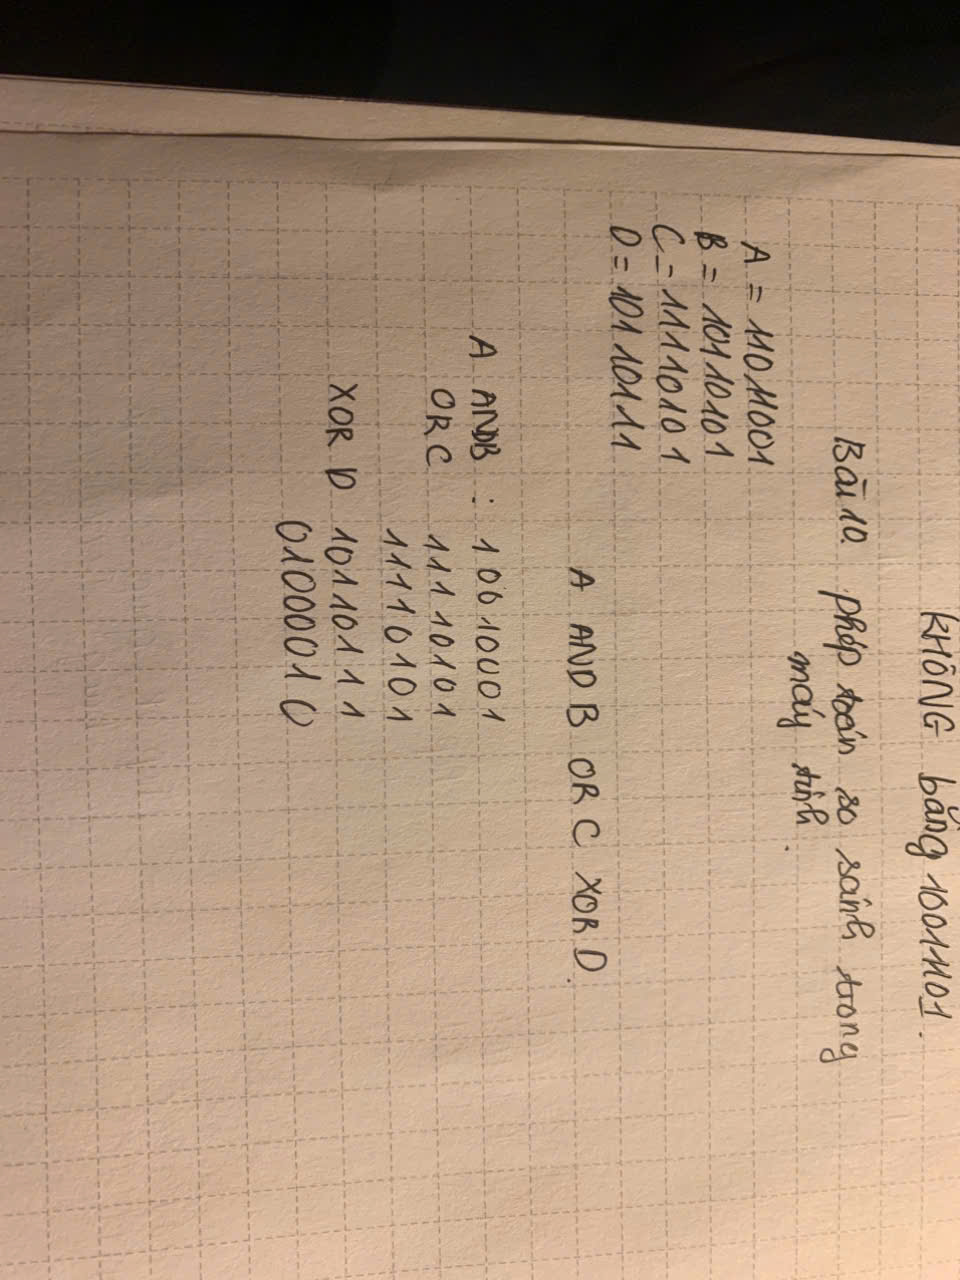 KHÔNG bằng 10011101.
Bài 10. phép toán so sánh trong
máy tính.
A = 11011001
B = 10110101
C = 11110101
D = 10110111
A AND B OR C XOR D.
A AND B : 10010001
OR C 11110101
11110101
XOR D 10110111
01000010